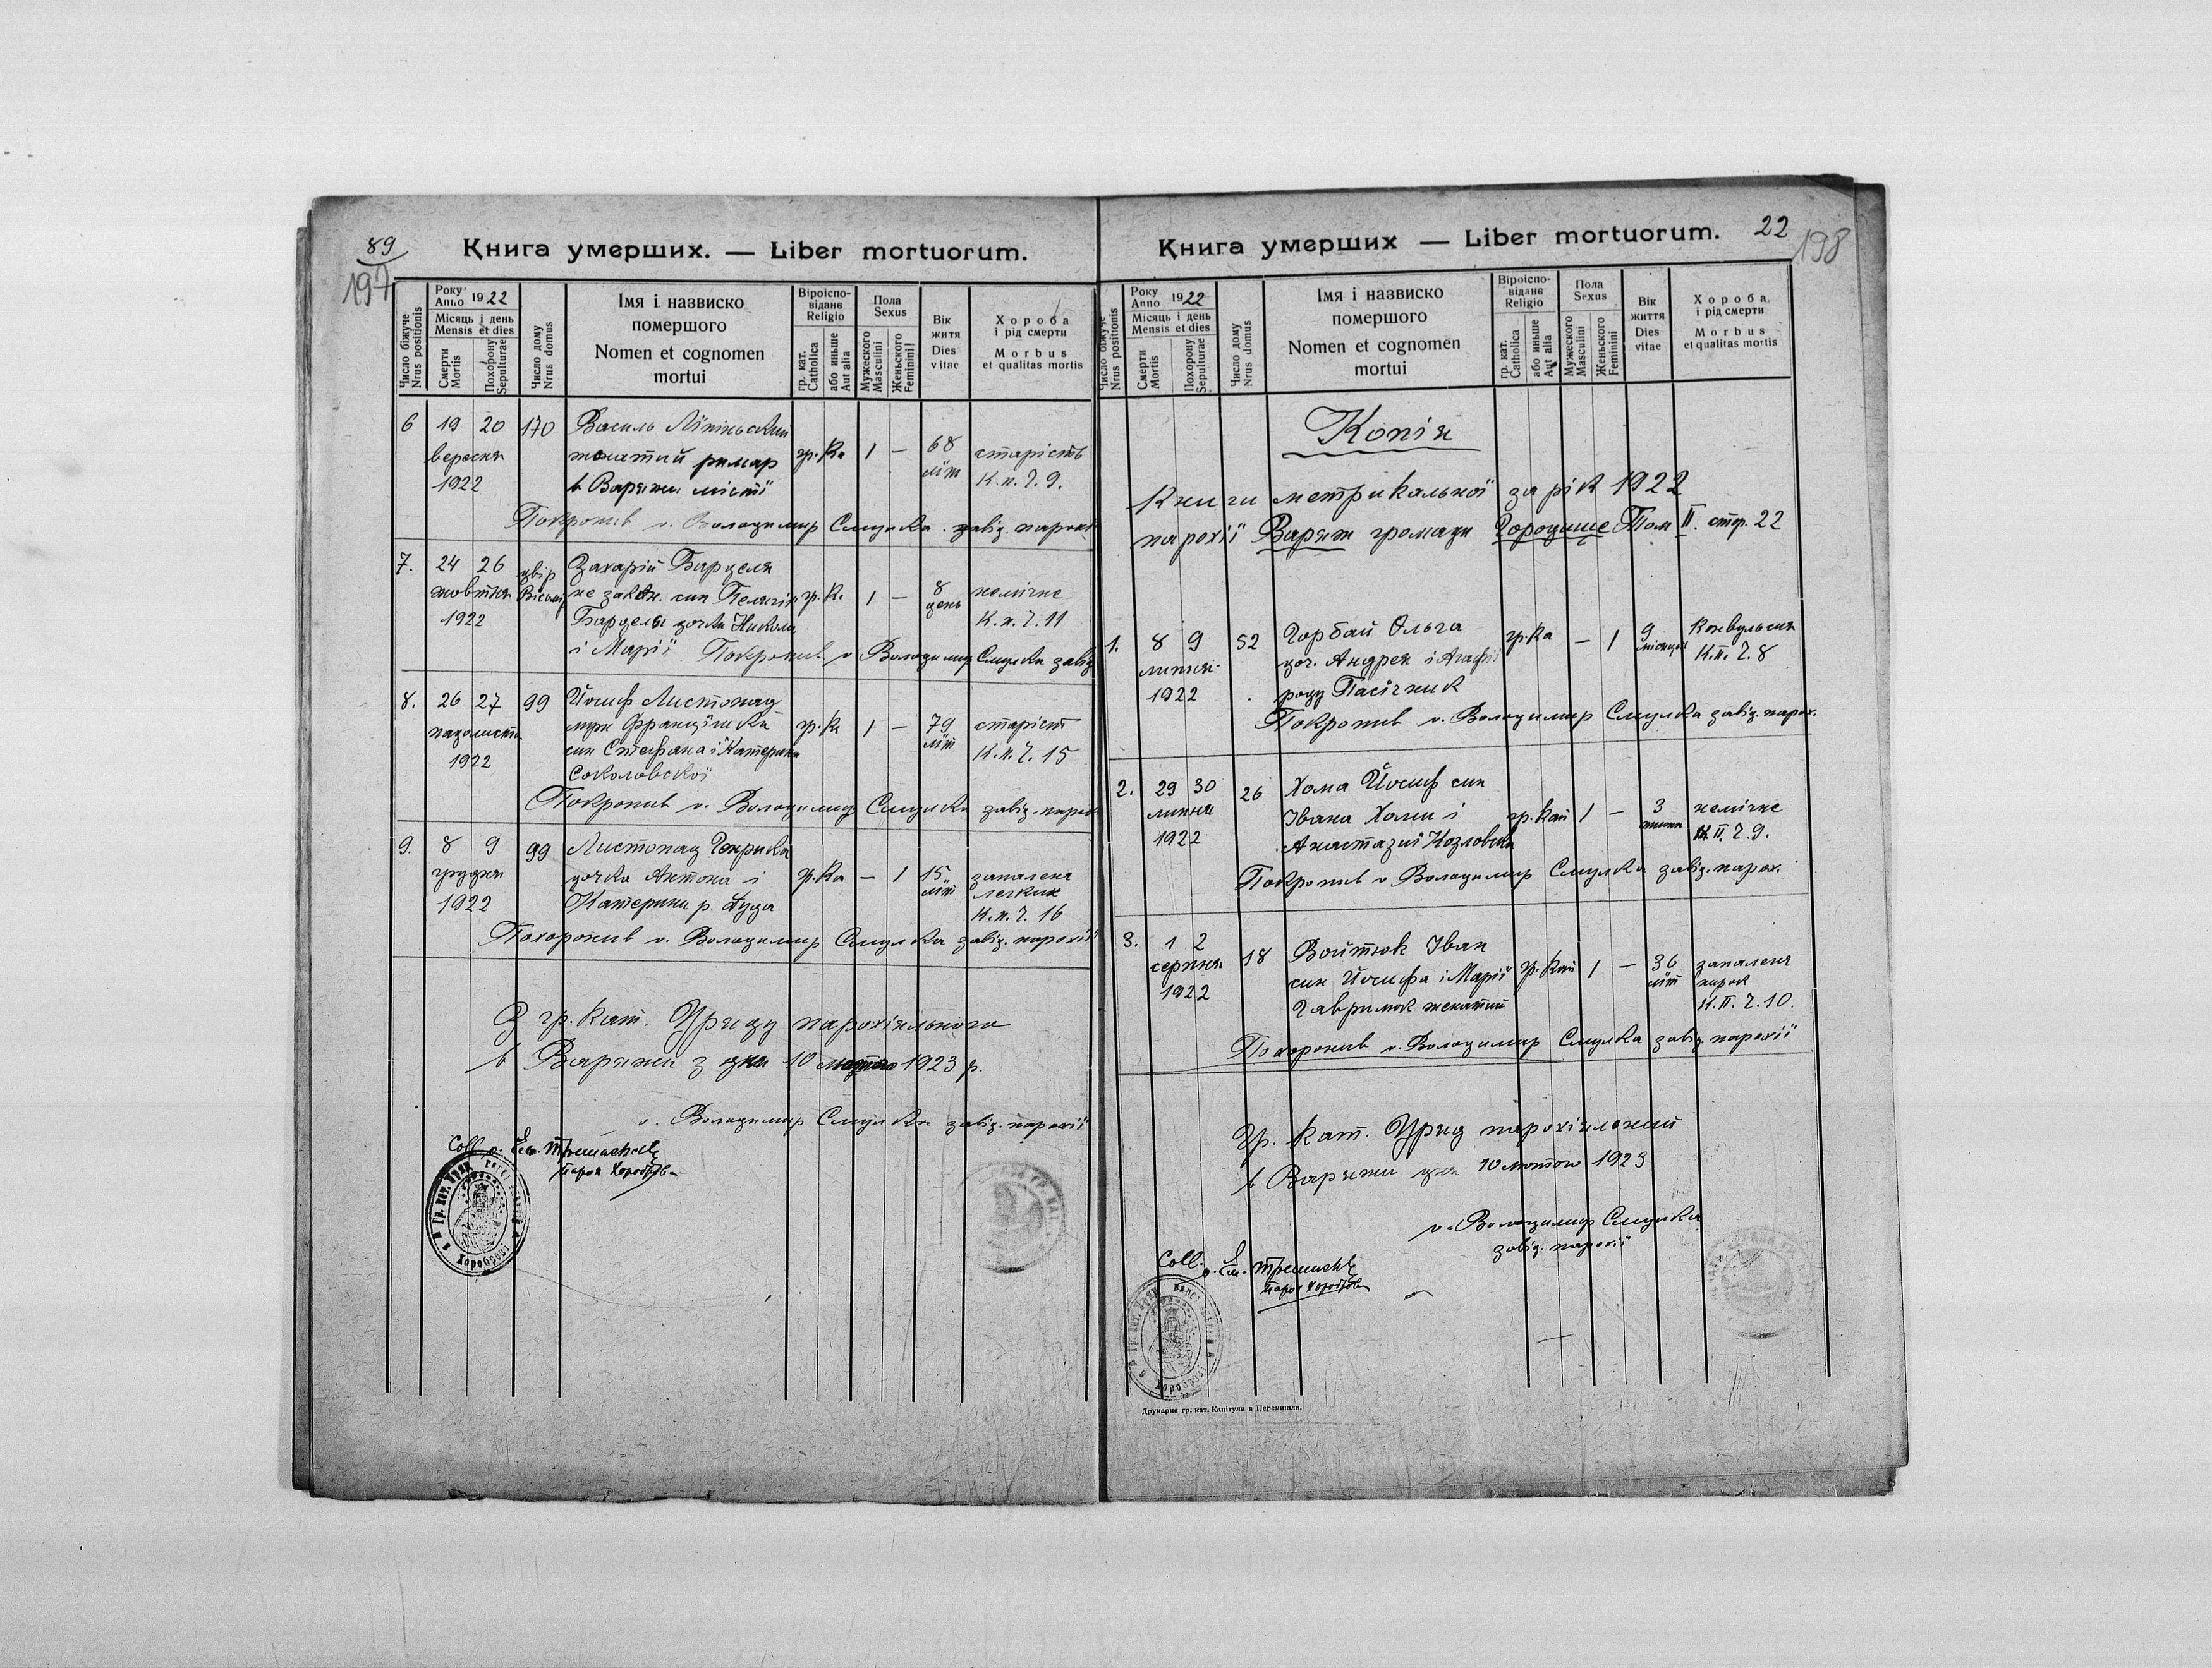 89
197
Книга умерших. — Liber mortuorum.
Число біжуче
Nrus positionis
Року
Anno 1922
Місяць і день
Mensis et dies
Смерти
Mortis
Похорону
Sepulturae
Число дому
Nrus domus
Імя і назвиско
помершого
Nomen et cognomen
mortui
Віроіспо-
відане
Religio
гр. кат.
Catholica
або иньше
Aut alia
Пола
Sexus
Мужеского
Masculini
Женьского
Feminini
Вік
житя
Dies
vitae
Хороба
і рід смерти
Morbus
et qualitas mortis
6 19 20 170 Василь Ліпінський
вересня жонатий римар гр. ка 1 — 68 старість
1922 в Варяжи місті літ К. п. Ч. 9.
Покропив о. Володимир Смулка завід. парохії
7. 24 26 двір Захарій Барделя
жовтня не закон. син Пелягії гр. к. 1 — 8 немічне
1922 Бардели дочки Николи день К. п. Ч. 11
і Марії Покропив о Володимир Смулка завід
8. 26 27 99 Йосиф Листопад
падолиста муж Францішки гр. ка 1 — 79 старіст
1922 син Стефана і Катерини літ К. п. Ч. 15
Соколовскої
Покропив о. Володимир Смулка завід. парох
9. 8 9 99 Листопад Генрика
грудня дочка Антона і гр. ка — 1 15 запаленя
1922 Катерини р. Дуда літ легких
К. п. Ч. 16
Похоронив о. Володимир Смулка завід. парохії
З гр. кат. Уряду парохіяльного
в Варяжи з дня 10 лютого 1923 р.
о. Володимир Смулка завід. парохії
Coll.
парох Хоробрів
Хороброві
Книга умерших — Liber mortuorum.
22
198
Число біжуче
Nrus positionis
Року
Anno 1922
Місяць і день
Mensis et dies
Смерти
Mortis
Похорону
Sepulturae
Число дому
Nrus domus
Імя і назвиско
помершого
Nomen et cognomen
mortui
Віроіспо-
відане
Religio
гр. кат.
Catholica
або иньше
Aut alia
Пола
Sexus
Мужеского
Masculini
Женьского
Feminini
Вік
життя
Dies
vitae
Хороба
і рід смерти
Morbus
et qualitas mortis
Копія
Книги метрикальної за рік 1922
парохії Варяж громади Городище Том II. стор. 22
1. 8 9 52 Горбай Ольга гр. ка — 1 9 Конвульсия
липня доч. Андрея і Агафії місяців К. П. Ч. 8
1922 роду Пасічник
Покропив о. Володимир Смулка завід. парох.
2. 29 30 26 Хома Йосиф син
липня Івана Хоми і гр. кат 1 — 3 немічне
1922 Анастазиї Козловска К. П. Ч. 9.
Покропив о Володимир Смулка завід. парох.
3. 1 2 18 Войтюк Іван
серпня син Йосифа і Марії гр. кат 1 — 36 запаленя
1922 Гавримок жонатий літ нирок
К. П. Ч. 10.
Похоронив о. Володимир Смулка завід. парохії
Гр. кат. Уряд парохіяльний
в Варяжи дня 10 лютого 1923
о. Володимир Смулка
завід. парохії
Coll.
парох Хоробрів
Хороброві
Друкарня гр. кат. Капітули в Перемишли.